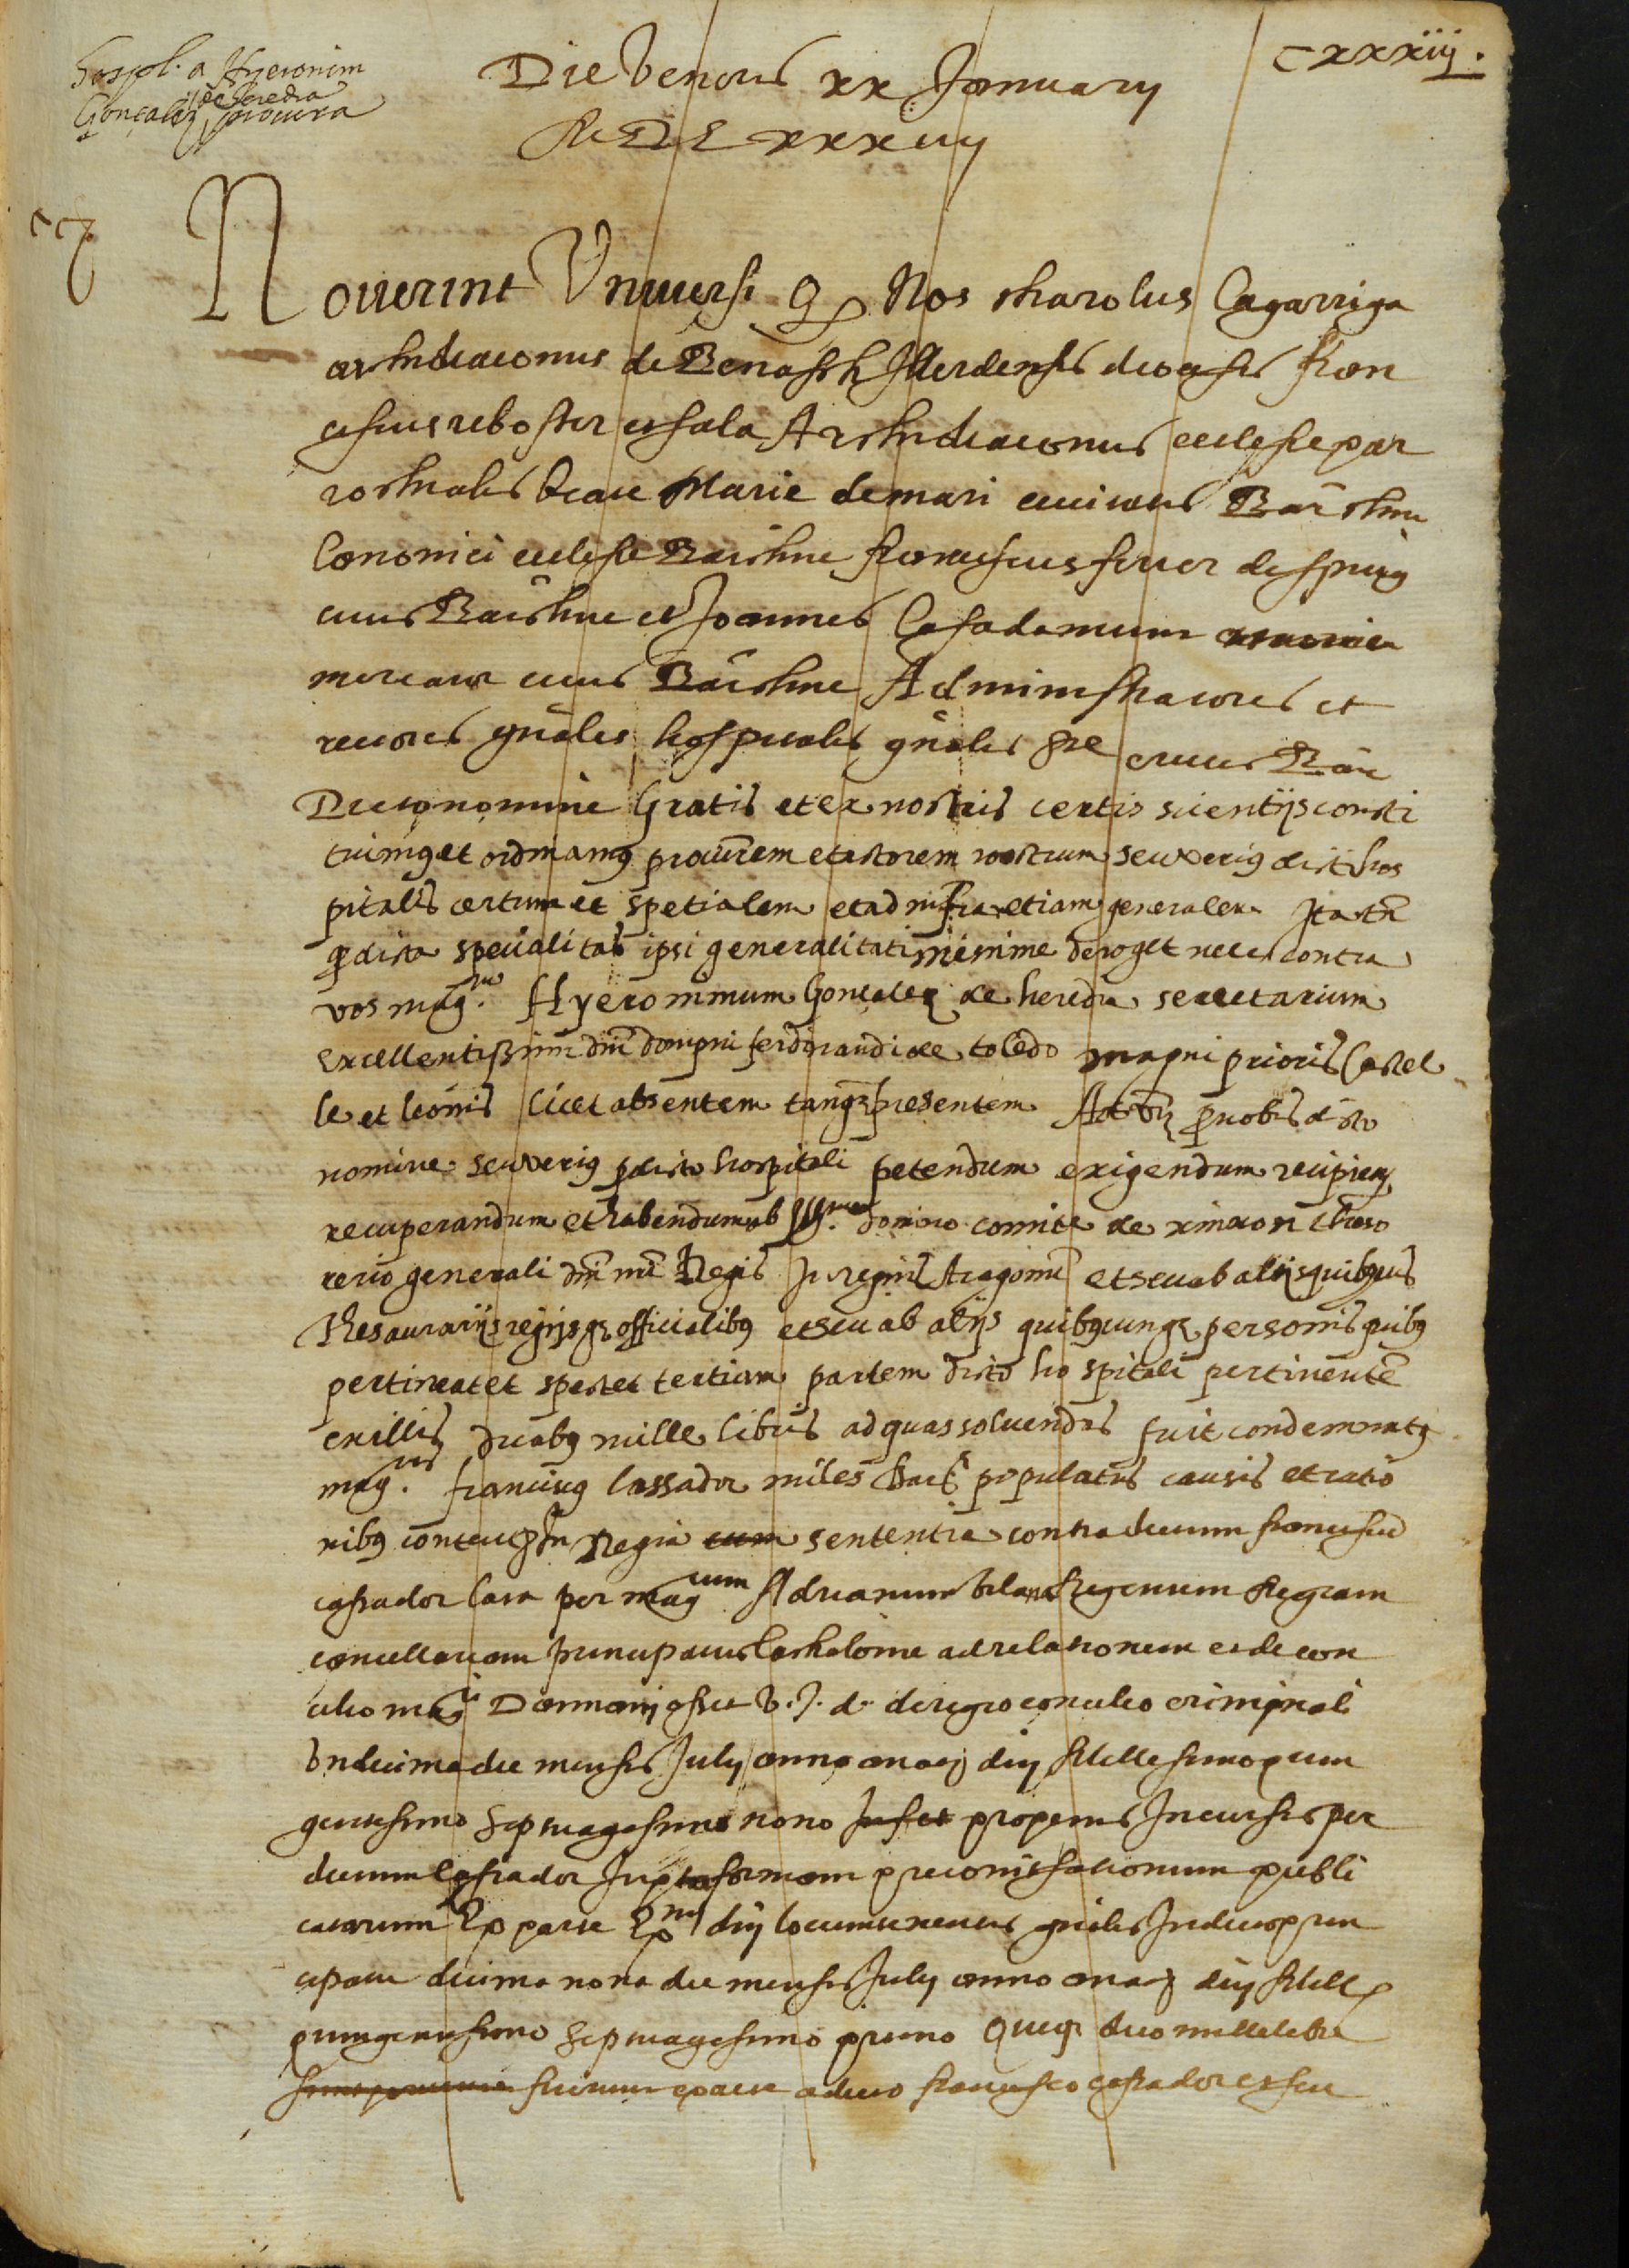 cxxxiij.
hospl. a Hyeronim
de heredia
Gonçalez procura
Die Veneris xx January
M D L xxx iiij
Noverint Universi q Nos Charolus Çagarriga
archidiaconus de Benasch Illerdensis diocesis Fran
ciscus reboster et sala Archidiaconus ecclesie par
rochialis beate Marie de mari civitatis Barchne
Canonici ecclesie Barchne Franciscus ferrer despuig
civis Barchne et Joannes Casadamunt
mercator civis Barchne Administratores et
rectores gnales hospitalis gnalis Ste crucis Barc
Dicto nomine Gratis et ex nostris certis scientijs consti
tuimus et ordinamus procurem et actorem nostrum seu verius dicti hos
pitalis certum et spetialem et ad infra etiam generalem Ita tn
q dicta specialitas ipsi generalitati minime deroget nec e contra
vos mag.cu Hyeronimum Gonçalez de heredia secretarium
excellentissimi dni dompni ferdinandi de toledo magni prioris Castel
le et leonis licet absentem tanq presentem Ad videlz p nobis dicto
nomine seu verius p dicto hospitali petendum exigendum recipiend
recuperandum et habendum ab Ill.mo domino comite de xinxon theso
rerio generali dni nri Regis In regnis Aragonu et seu ab alijs quibusuis
Thesaurarijs regijsq officialibus et seu ab alijs quibuscunq personis quibus
pertineat et spectet tertiam partem dicto hospitali pertinente
ex illis duabus mille libris ad quas solvendas fuit condemnatus
mag.cus franciscus Cassador miles Barc populatus causis et ratio
nibus contentis In Regia cum sententia contra dictum franciscu
cassador lata per mag cum Adrianum Regiam
cancellariam principatus Cathalonie ad relationem et de con
cilio mag.ci Damiani V. J. d. de regio concilio criminali
Undecima die mensis July anno a nate dnj Millesimo quin
gentesimo septuagesimo nono propenis Incursis per
dictum Cassador Iuxta formam preconitzationum publi
catarum Ex parte Ex.mi dnj locumtenentis gnalis In dicto prin
cipatu decima nona die mensis July anno a nate dnj Mill
quingentesimo septuagesimo primo Queq duo mille libre
fuerunt exacte a dicto francisco cassador et seu